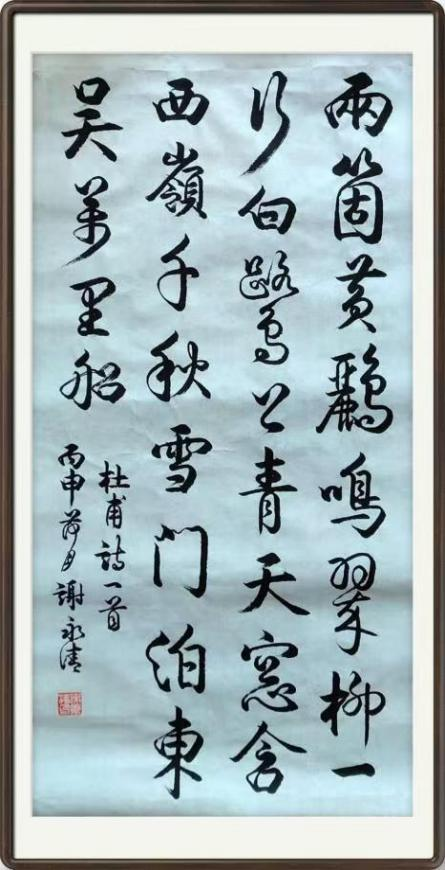 兩箇黃鸝鳴翠柳一
行白鷺上青天窓含
西嶺千秋雪門泊東
吳萬里船
杜甫詩一首
丙申月謝永清